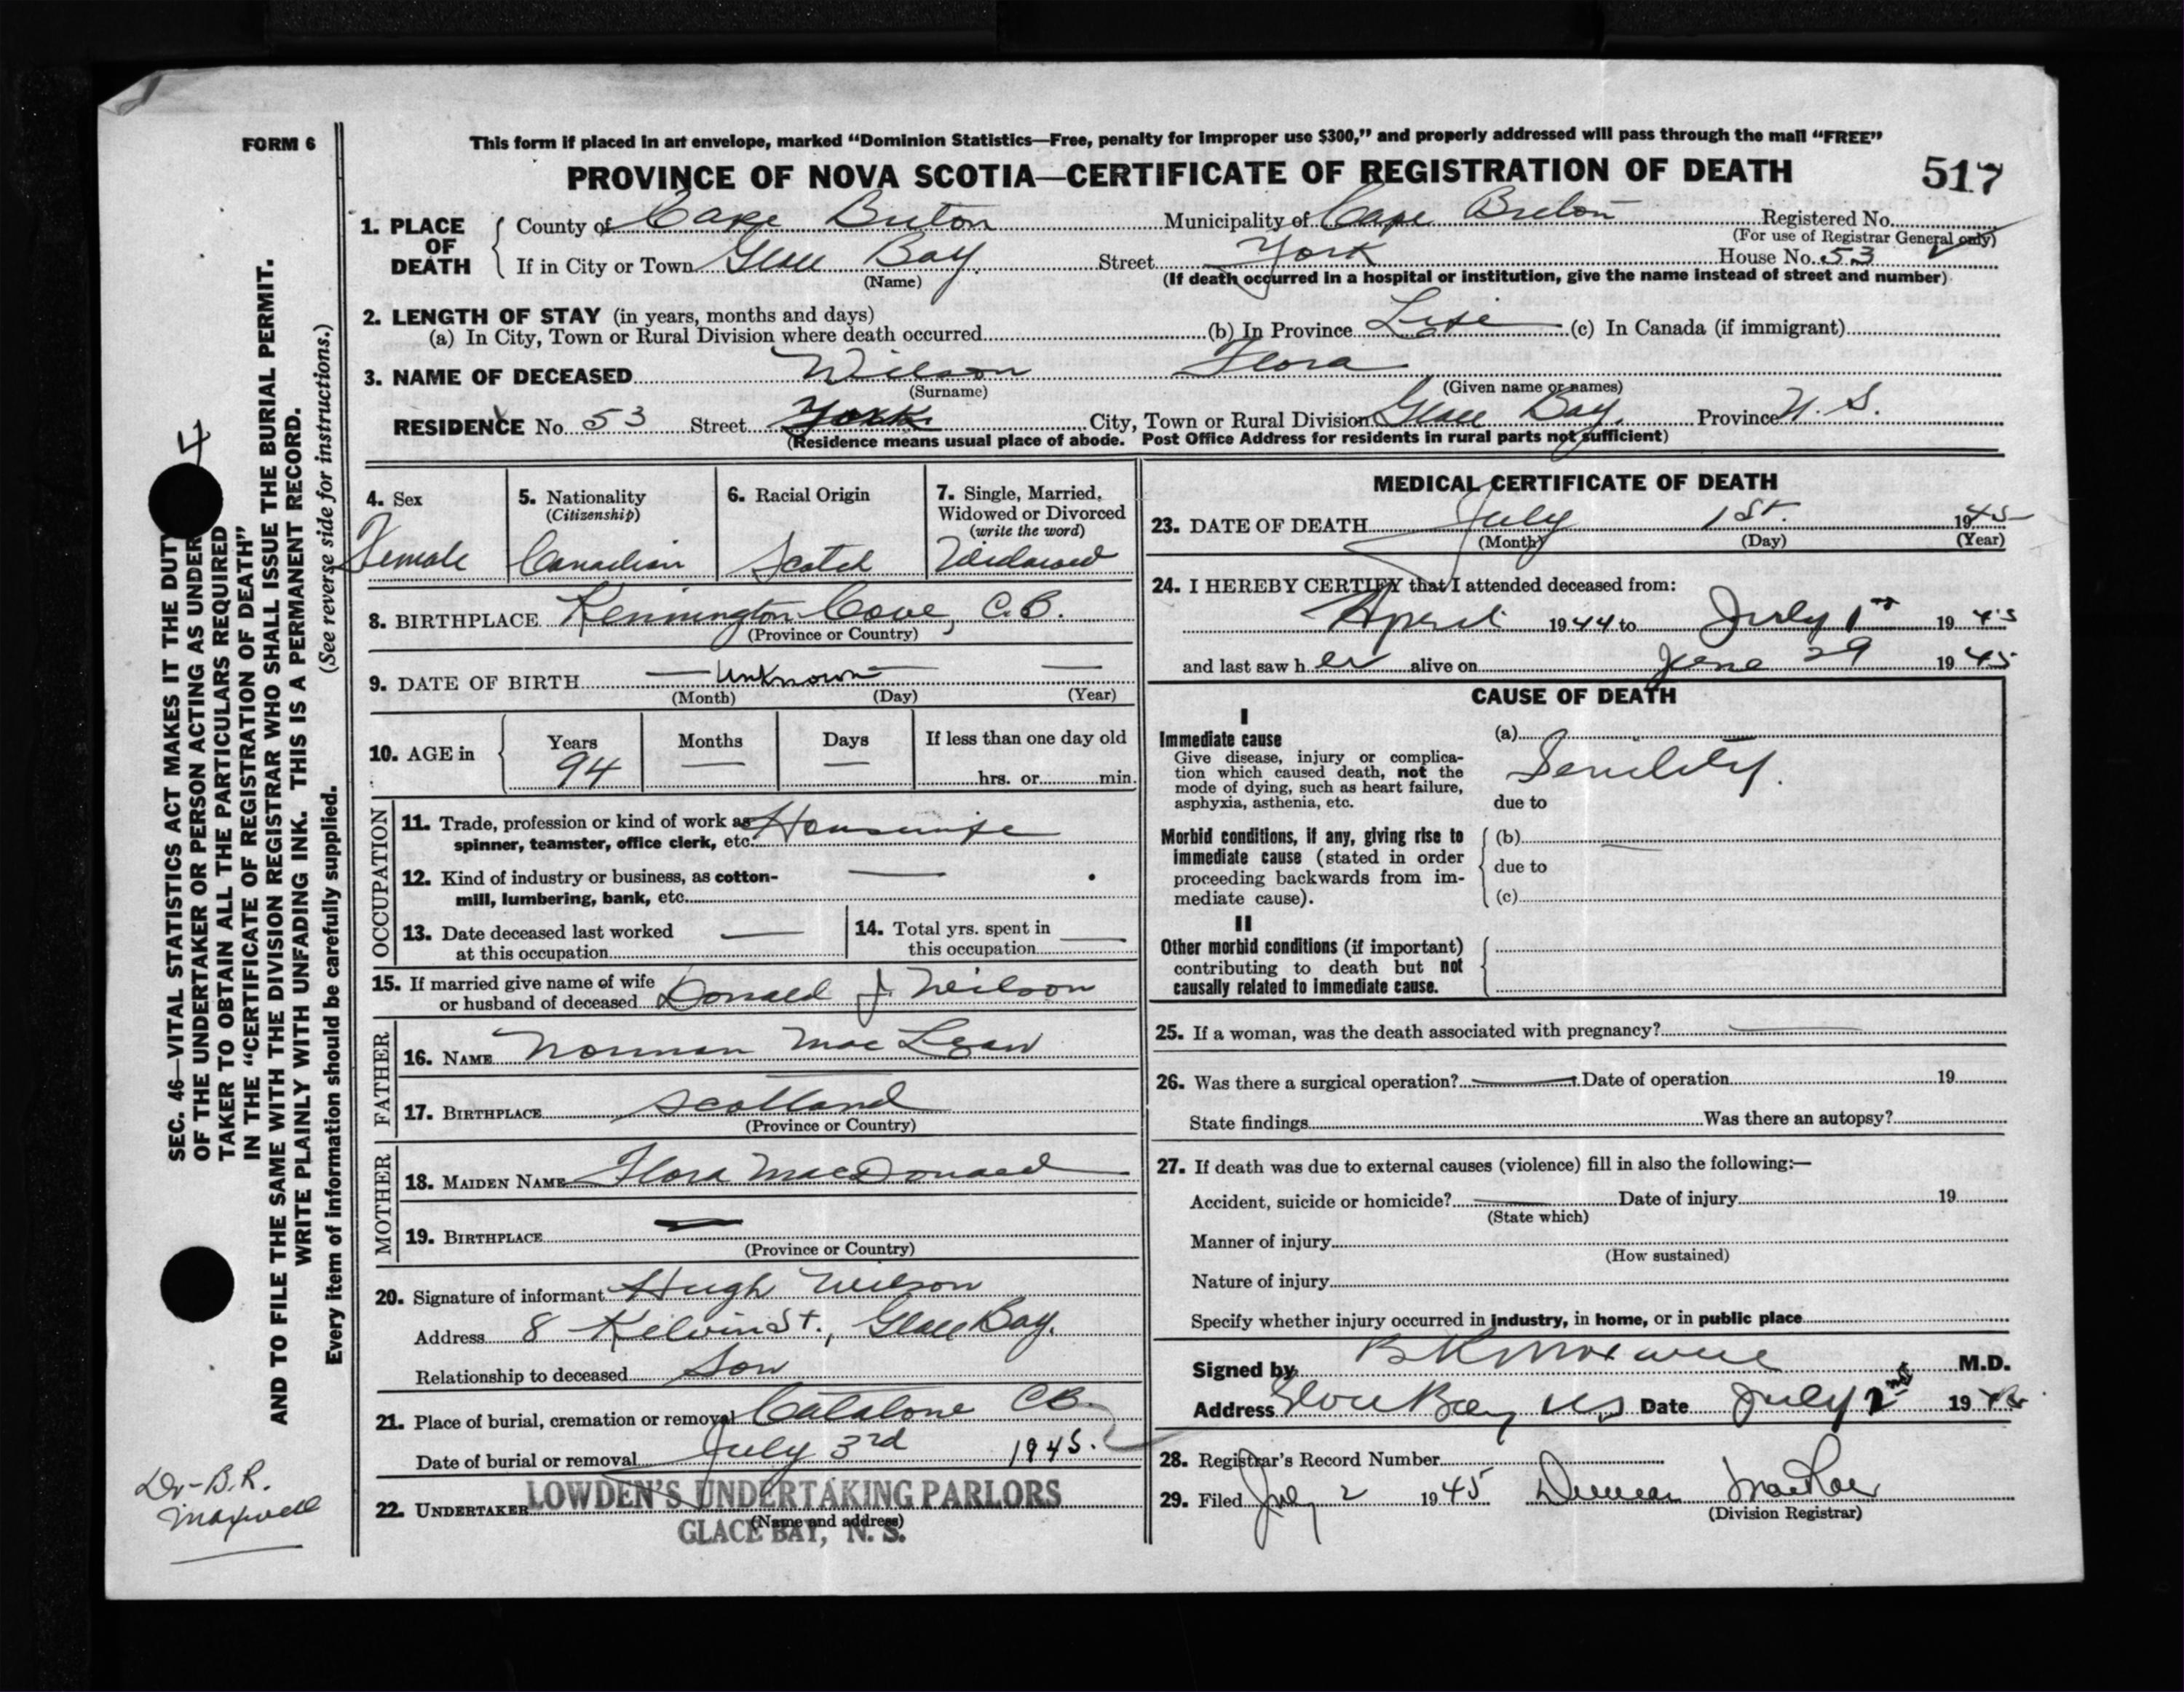 FORM 6
This form if placed in art envelope, marked “Dominion Statistics—Free, penalty for improper use $300,” and properly addressed will pass through the mail “FREE”
PROVINCE OF NOVA SCOTIA—CERTIFICATE OF REGISTRATION OF DEATH
517
1. PLACE OF DEATH
County of Cape Breton Municipality of Cape Breton Registered No.
(For use of Registrar General only)
If in City or Town Glace Bay Street York House No. 53
(Name) (If death occurred in a hospital or institution, give the name instead of street and number)
2. LENGTH OF STAY (in years, months and days)
(a) In City, Town or Rural Division where death occurred (b) In Province Life (c) In Canada (if immigrant)
3. NAME OF DECEASED Wilson Flora
(Surname) (Given name or names)
RESIDENCE No. 53 Street York City, Town or Rural Division Glace Bay. Province N. S.
(Residence means usual place of abode. Post Office Address for residents in rural parts not sufficient)
4. Sex
Female
5. Nationality
(Citizenship)
Canadian
6. Racial Origin
Scotch
7. Single, Married, Widowed or Divorced
(write the word)
Widowed
8. BIRTHPLACE Kennington Cove, C.B.
(Province or Country)
9. DATE OF BIRTH — Unknown — —
(Month) (Day) (Year)
10. AGE in
Years Months Days If less than one day old
94 — — hrs. or min.
OCCUPATION
11. Trade, profession or kind of work as Housewife
spinner, teamster, office clerk, etc.
12. Kind of industry or business, as cotton- —
mill, lumbering, bank, etc.
13. Date deceased last worked —
at this occupation
14. Total yrs. spent in
this occupation —
15. If married give name of wife
or husband of deceased Donald J Wilson
FATHER
16. NAME Norman MacLean
17. BIRTHPLACE Scotland
(Province or Country)
MOTHER
18. MAIDEN NAME Flora MacDonald
19. BIRTHPLACE —
(Province or Country)
20. Signature of informant Hugh Wilson
Address 8 Kelvin St., Glace Bay.
Relationship to deceased Son
21. Place of burial, cremation or removal Catalone CB.
Date of burial or removal July 3rd 1945.
22. UNDERTAKER LOWDEN'S UNDERTAKING PARLORS
(Name and address)
GLACE BAY, N. S.
MEDICAL CERTIFICATE OF DEATH
23. DATE OF DEATH July 1st. 1945
(Month) (Day) (Year)
24. I HEREBY CERTIFY that I attended deceased from:
April 1944 to July 1st 1945
and last saw her alive on June 29 1945
CAUSE OF DEATH
I
Immediate cause
Give disease, injury or complica-
tion which caused death, not the
mode of dying, such as heart failure,
asphyxia, asthenia, etc.
(a) Senility.
due to
Morbid conditions, if any, giving rise to
immediate cause (stated in order
proceeding backwards from im-
mediate cause).
(b) —
due to
(c)
II
Other morbid conditions (if important)
contributing to death but not
causally related to immediate cause.
25. If a woman, was the death associated with pregnancy? —
26. Was there a surgical operation? — Date of operation 19
State findings Was there an autopsy?
27. If death was due to external causes (violence) fill in also the following:—
Accident, suicide or homicide? — Date of injury 19
(State which)
Manner of injury
(How sustained)
Nature of injury
Specify whether injury occurred in industry, in home, or in public place
Signed by M.D.
Address Glace Bay NS Date July 2nd 1945
28. Registrar's Record Number
29. Filed July 2 1945 Duncan MacRae
(Division Registrar)
4
SEC. 46—VITAL STATISTICS ACT MAKES IT THE DUTY
OF THE UNDERTAKER OR PERSON ACTING AS UNDER
TAKER TO OBTAIN ALL THE PARTICULARS REQUIRED
IN THE “CERTIFICATE OF REGISTRATION OF DEATH”
AND TO FILE THE SAME WITH THE DIVISION REGISTRAR WHO SHALL ISSUE THE BURIAL PERMIT.
WRITE PLAINLY WITH UNFADING INK. THIS IS A PERMANENT RECORD.
Every item of information should be carefully supplied. (See reverse side for instructions.)
Dr-B.R.
Maxwell